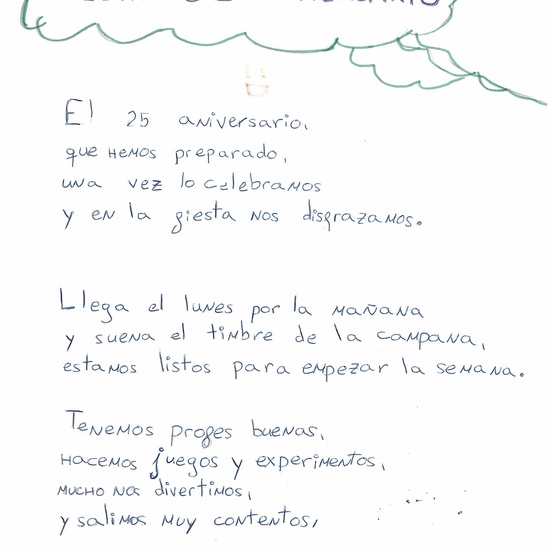 El 25 aniversario,
que hemos preparado,
una vez lo celebramos
y en la fiesta nos disfrazamos.
Llega el lunes por la mañana
y suena el timbre de la campana,
estamos listos para empezar la semana.
Tenemos profes buenas,
hacemos juegos y experimentos,
mucho nos divertimos,
y salimos muy contentos,